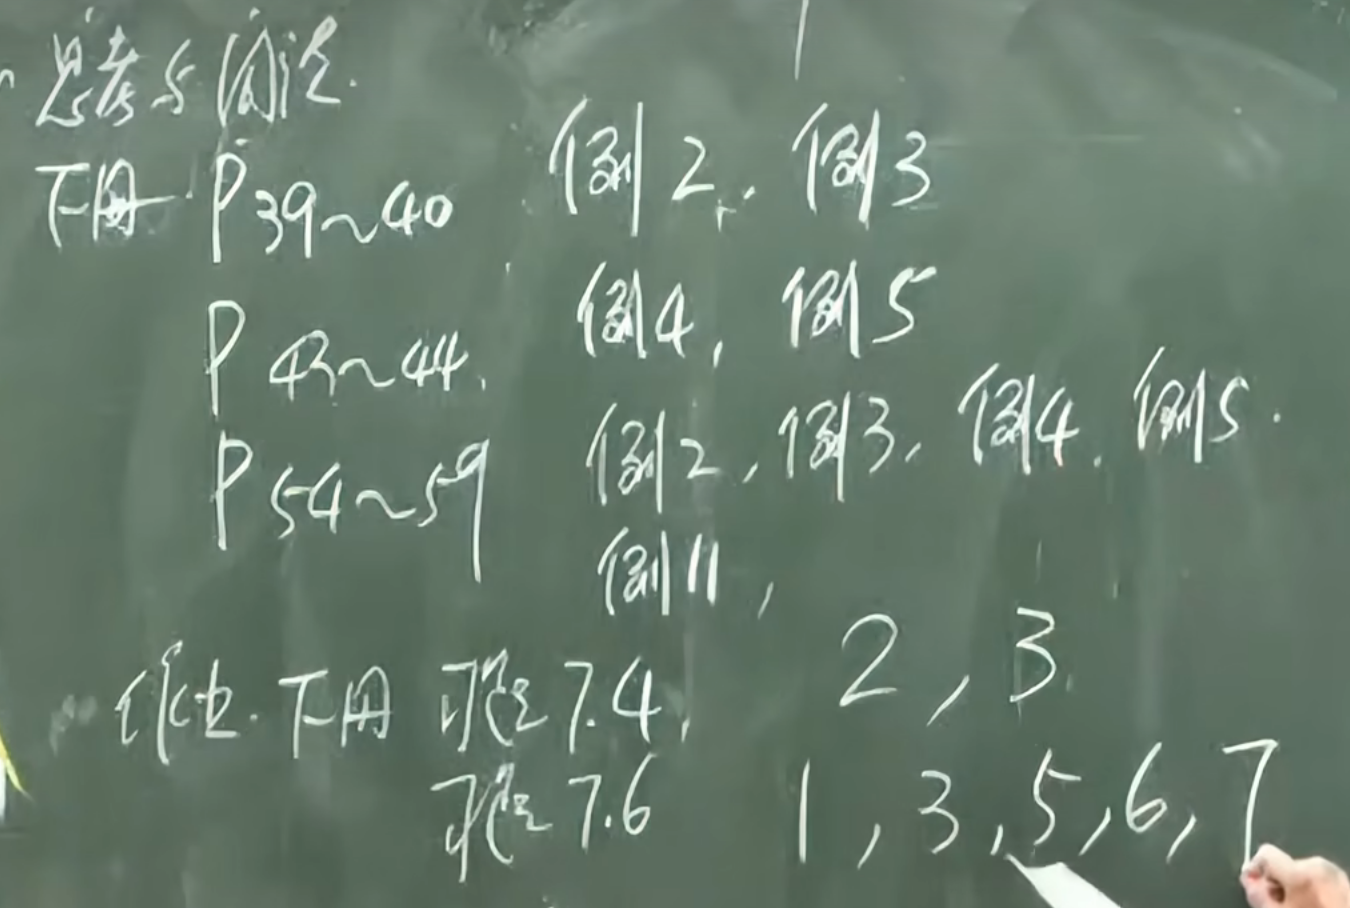 思考与讨论.
下册 P39~40 例2, 例3
P43~44, 例4, 例5
P54~59 例2, 例3, 例4, 例5.
例11,
作业. 下册 习题7.4, 2, 3.
习题7.6 1, 3, 5, 6, 7